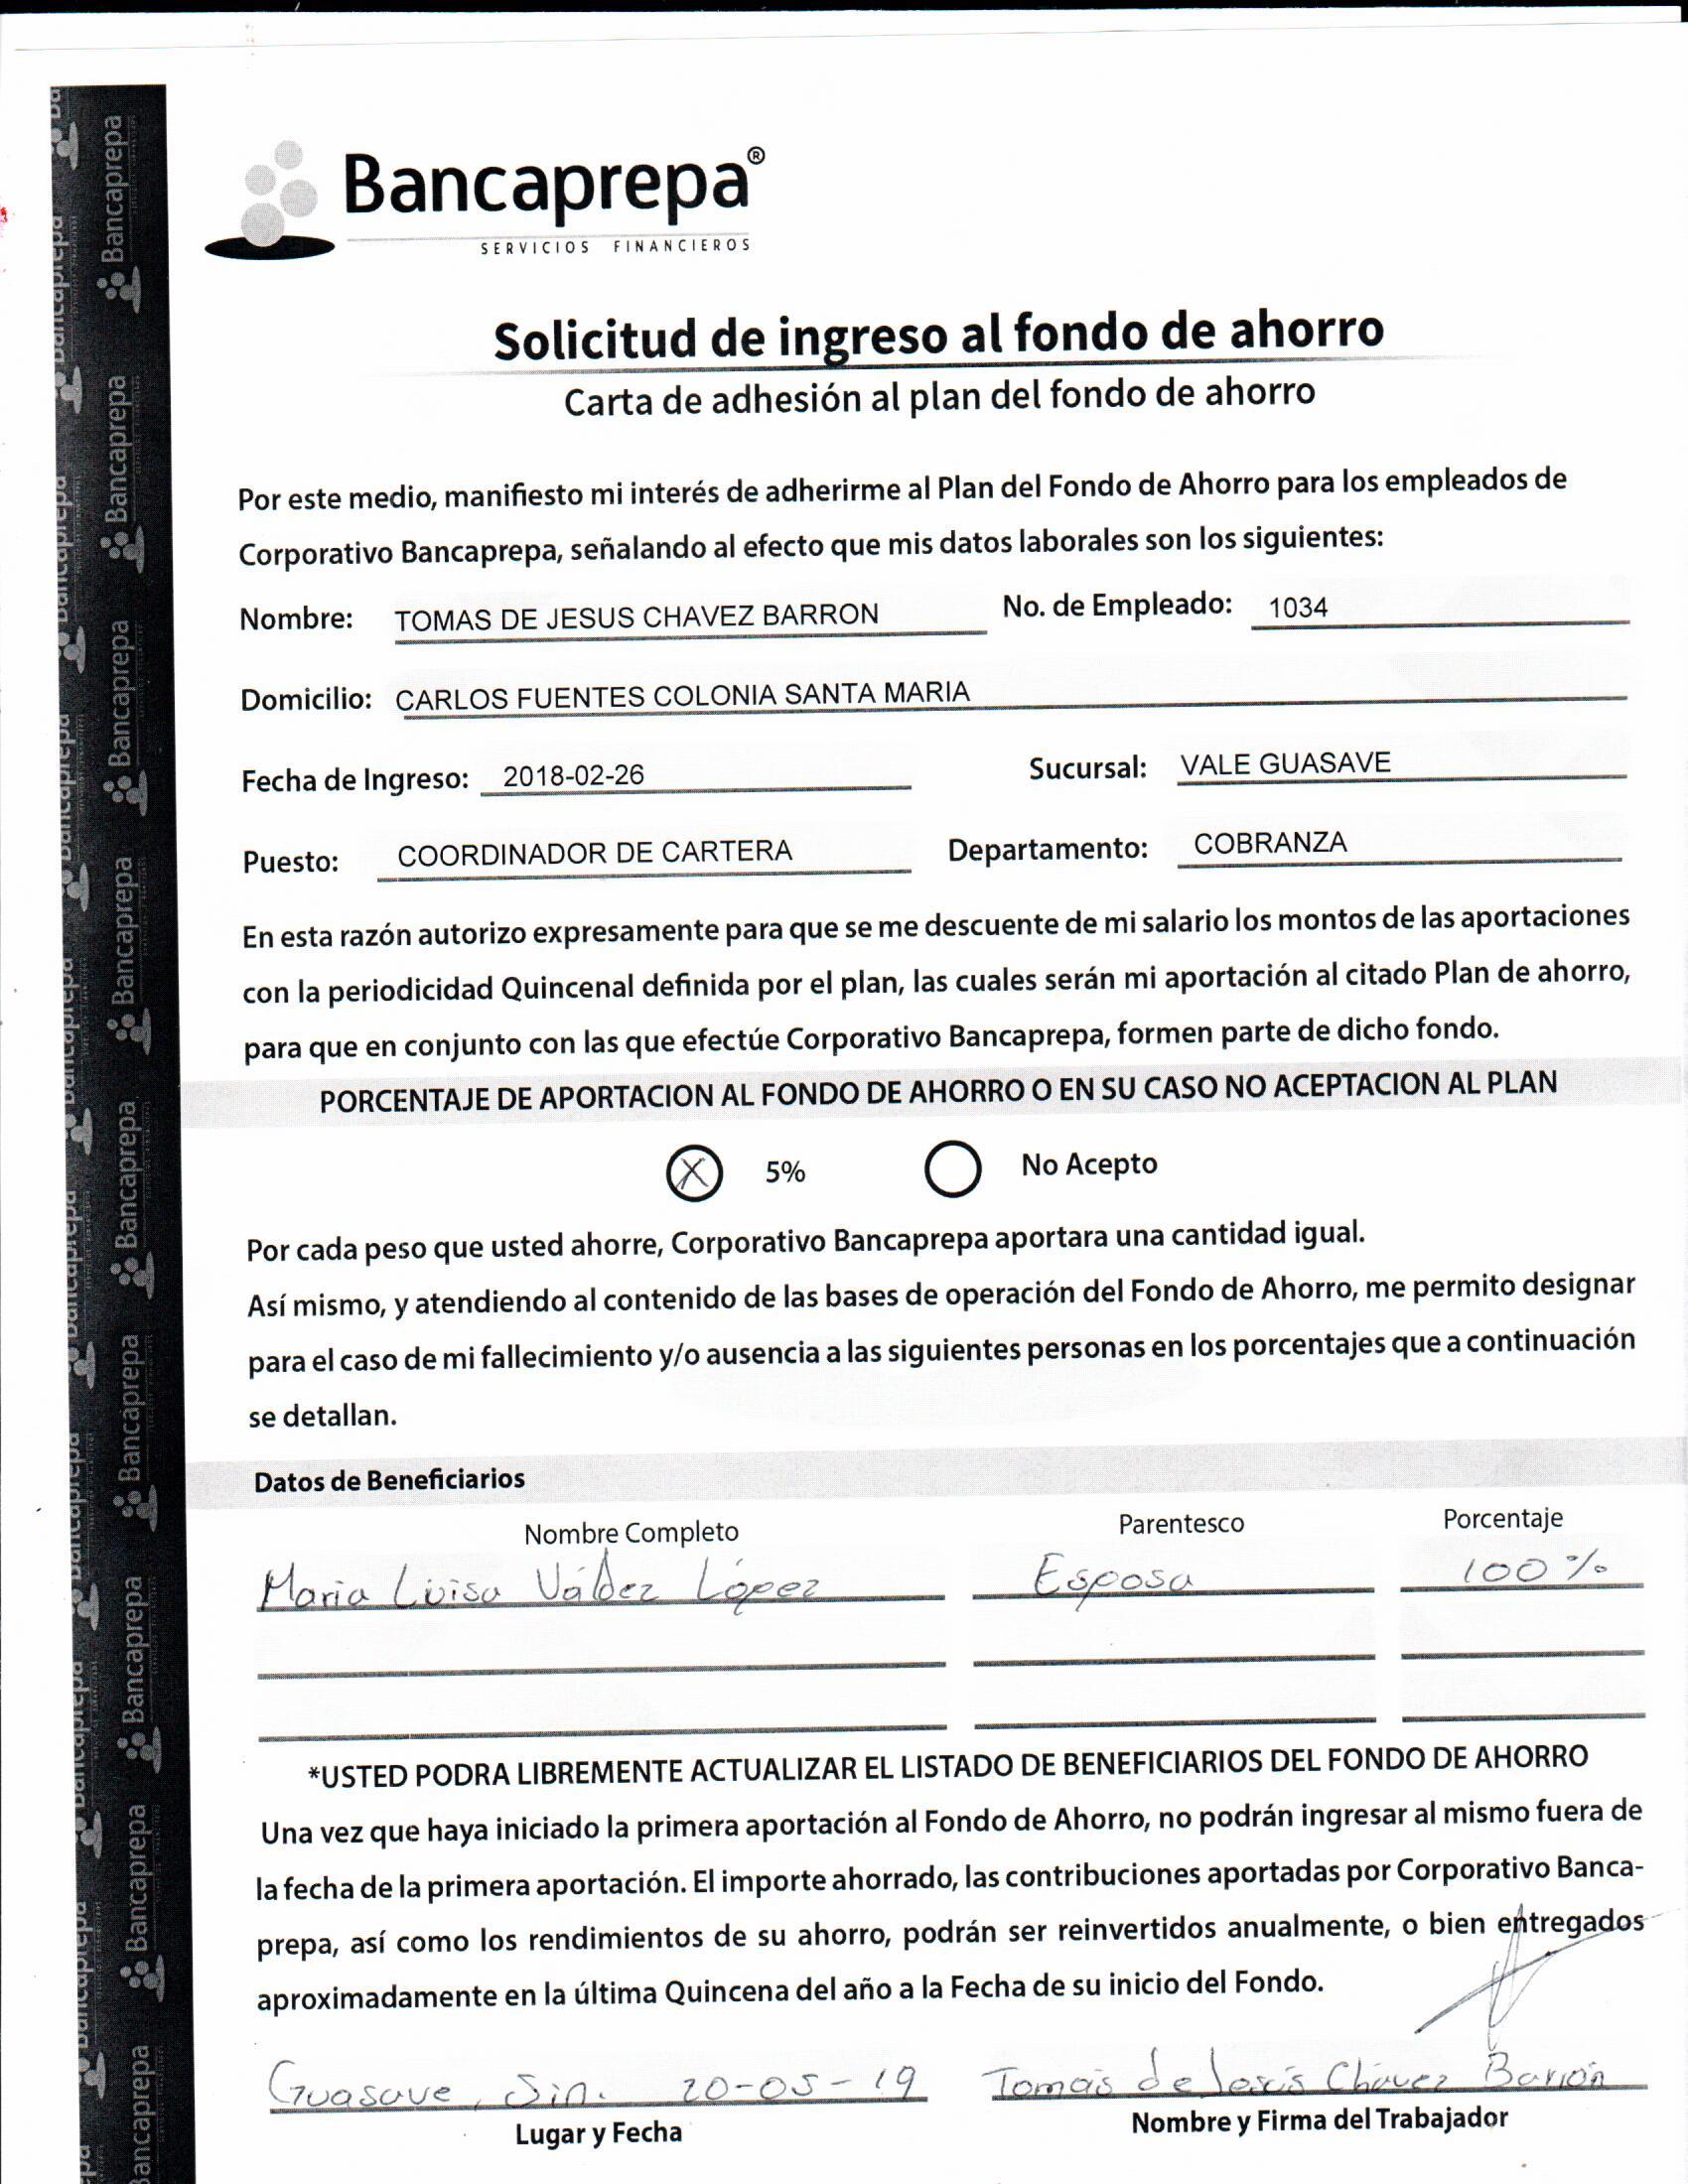 Bancaprepa®
SERVICIOS FINANCIEROS
Solicitud de ingreso al fondo de ahorro
Carta de adhesión al plan del fondo de ahorro
Por este medio, manifiesto mi interés de adherirme al Plan del Fondo de Ahorro para los empleados de
Corporativo Bancaprepa, señalando al efecto que mis datos laborales son los siguientes:
Nombre: TOMAS DE JESUS CHAVEZ BARRON No. de Empleado: 1034
Domicilio: CARLOS FUENTES COLONIA SANTA MARIA
Fecha de Ingreso: 2018-02-26 Sucursal: VALE GUASAVE
Puesto: COORDINADOR DE CARTERA Departamento: COBRANZA
En esta razón autorizo expresamente para que se me descuente de mi salario los montos de las aportaciones
con la periodicidad Quincenal definida por el plan, las cuales serán mi aportación al citado Plan de ahorro,
para que en conjunto con las que efectúe Corporativo Bancaprepa, formen parte de dicho fondo.
PORCENTAJE DE APORTACION AL FONDO DE AHORRO O EN SU CASO NO ACEPTACION AL PLAN
X 5% No Acepto
Por cada peso que usted ahorre, Corporativo Bancaprepa aportara una cantidad igual.
Así mismo, y atendiendo al contenido de las bases de operación del Fondo de Ahorro, me permito designar
para el caso de mi fallecimiento y/o ausencia a las siguientes personas en los porcentajes que a continuación
se detallan.
Datos de Beneficiarios
Nombre Completo Parentesco Porcentaje
Maria Luisa Váldez López Esposa 100%
*USTED PODRA LIBREMENTE ACTUALIZAR EL LISTADO DE BENEFICIARIOS DEL FONDO DE AHORRO
Una vez que haya iniciado la primera aportación al Fondo de Ahorro, no podrán ingresar al mismo fuera de
la fecha de la primera aportación. El importe ahorrado, las contribuciones aportadas por Corporativo Banca-
prepa, así como los rendimientos de su ahorro, podrán ser reinvertidos anualmente, o bien entregados
aproximadamente en la última Quincena del año a la Fecha de su inicio del Fondo.
Guasave, Sin. 20-05-19 Tomás de Jesús Chávez Barrón
Lugar y Fecha Nombre y Firma del Trabajador